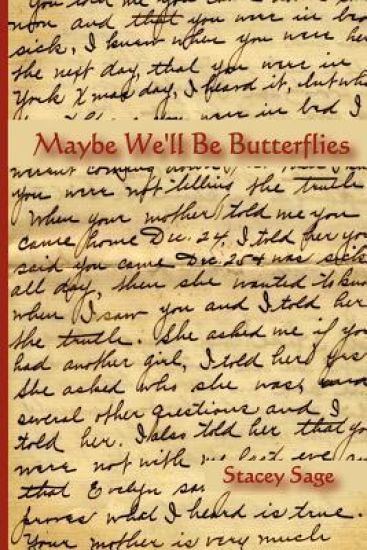 You told me you came
now and that you were in bro
sick, I knew when you were her
the next day, that you were in
York Xmas day, I heard it, but wh
you were in bed I
Maybe We'll Be Butterflies
weren't coming
you were not telling the truth
When your mother told me you
came home Dec. 24, I told her yo
said you came Dec. 25th was sick
all day, then she wanted to know
when I saw you and I told her
the truth. She asked me if yo
had another girl, I told her yes
She asked who she was,
several other questions and I
told her. I also told her that yo
were not with me last eve an
that Evelyn sa
Stacey Sage
proves what I heard is true.
Your mother is very much